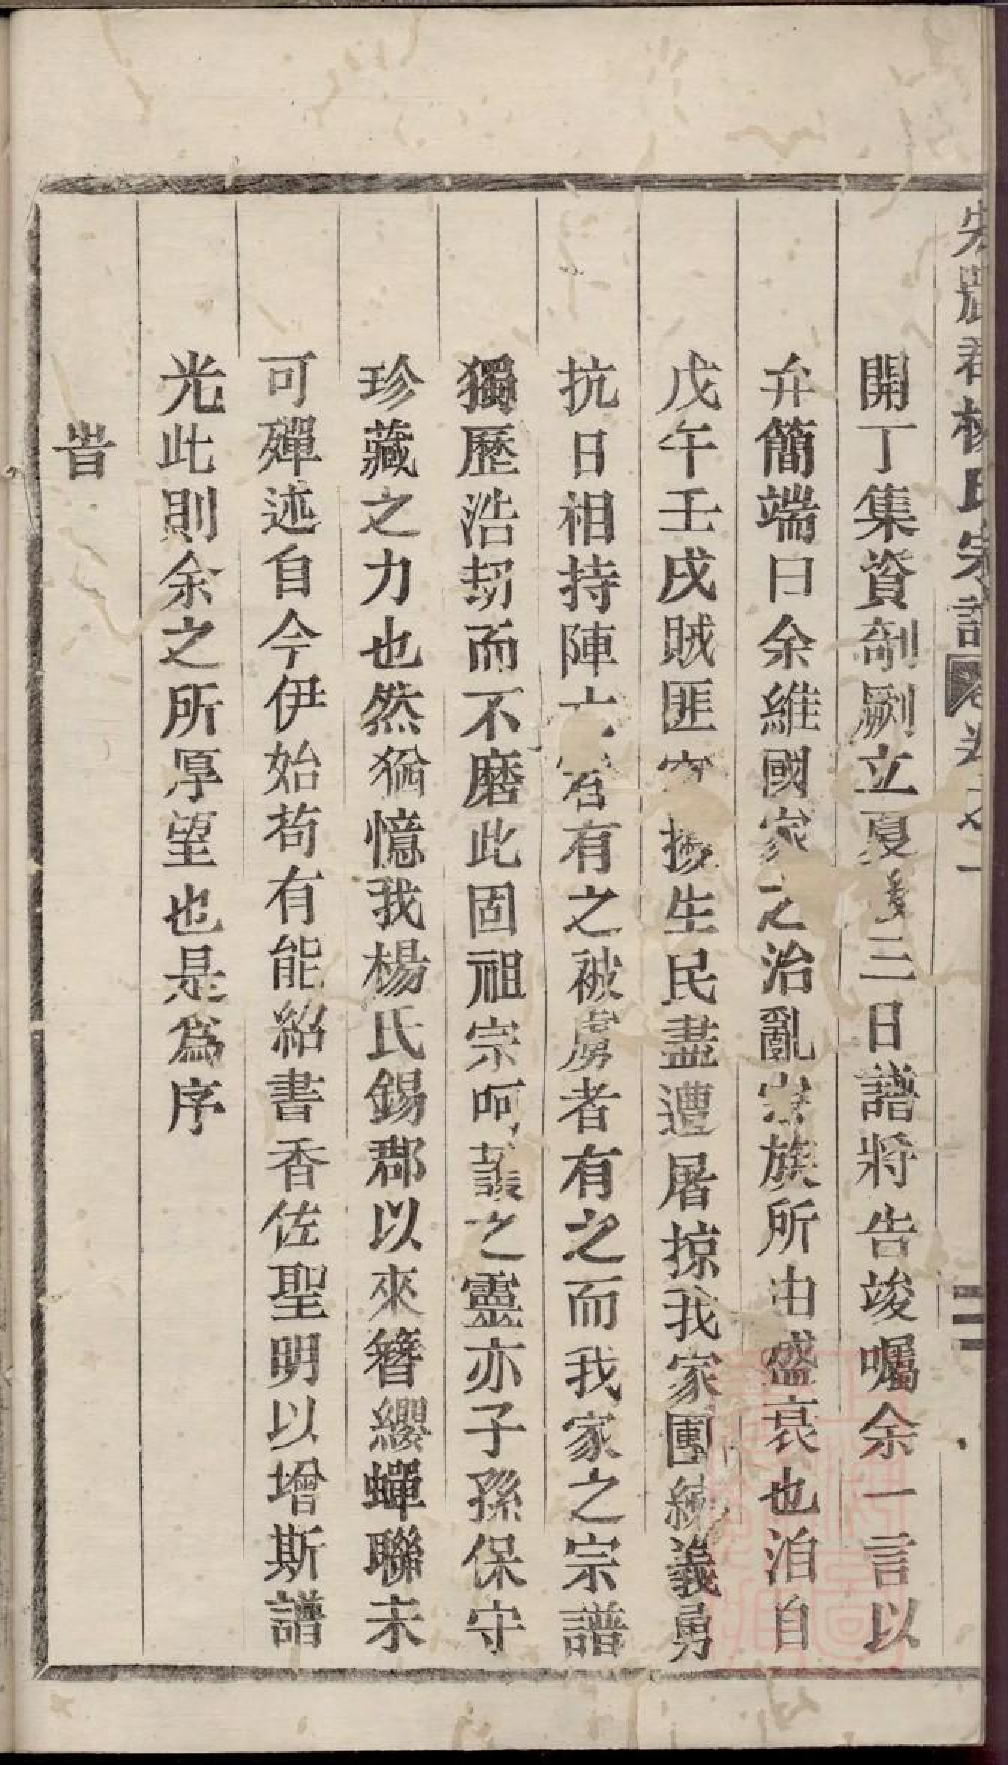 宏農郡楊氏宗譜 卷之一
開丁集資剞劂立夏後三日譜將告竣囑余一言以
弁簡端曰余維國家之治亂宗族所由盛衰也洎自
戊午壬戌賊匪擾生民盡遭屠掠我家團練義勇
抗日相持陣亡者有之被虜者有之而我家之宗譜
獨歷浩刧而不磨此固祖宗呵護之靈亦子孫保守
珍藏之力也然猶憶我楊氏錫郡以來簪纓蟬聯未
可殫述自今伊始茍有能紹書香佐聖明以增斯譜
光此則余之所厚望也是為序
旹